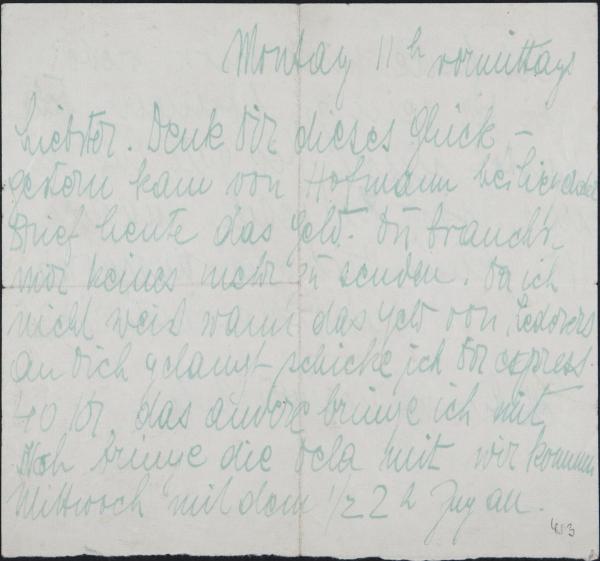 Montag 11 h vormittags
Liebster. Denk Dir dieses Glück –
gestern kam von Hofmann beiliegender
Brief heute das Geld. Du brauchst
mir keines mehr zu senden. Da ich
nicht weis wann das Geld von Lederers
an Dich gelangt schicke ich Dir express
40 Kr. das andere bringe ich mit
Ich bringe die mit wir kommen
Mittwoch mit dem 1/2 2 h Zug an.
413